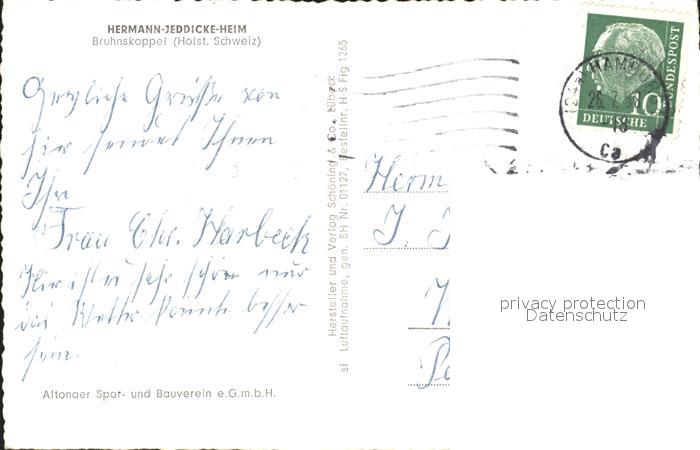 HERMANN-JEDDICKE-HEIM
Bruhnskoppel (Holst. Schweiz)
Herzliche Grüße von
hier sendet Ihnen
Ihre
Frau Chr. Harbeck
Hier ist es sehr schön nur
das Wetter könnte besser
sein.
Altonaer Spar- und Bauverein e.G.m.b.H.
Hersteller und Verlag Schöning & Co., Lübeck
si Luftaufnahme, gen. SH Nr. 01127, Bestellnr. H S Flg 1265
DEUTSCHE
BUNDESPOST
10
HAMBU
Herrn
J.
privacy protection
Datenschutz